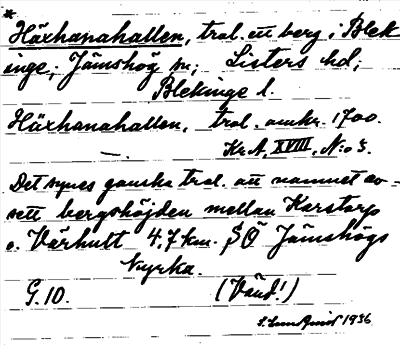 *
Häxhanahallen, trol. ett berg i Blek
inge; Jämshög sn; Listers hd;
Blekinge l.
Häxhanahallen, trol. omkr. 1700.
— Kr A, XVIII, N:o 3.
Det synes ganska trol. att namnet av-
sett bergshöjden mellan Karstorp
o. Vårhult 4,7 km. SÖ Jämshögs
kyrka.
G. 10. (Vänd!)
S. Lundquist 1936